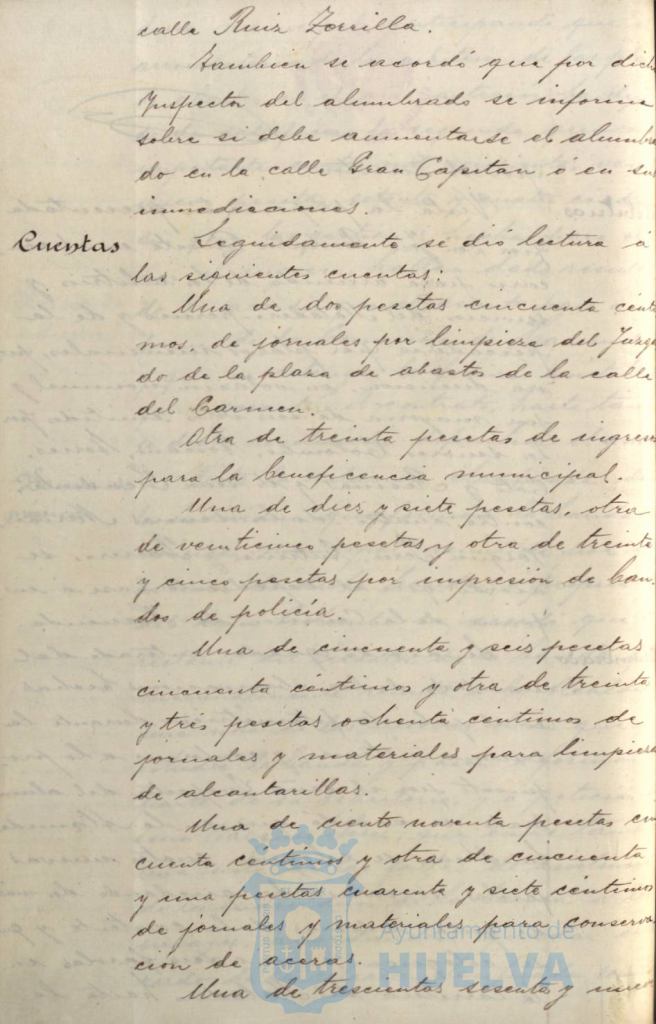 calle Ruiz Zorrilla.
Tambien se acordó que por dich
Inspector del alumbrado se informe
sobre si debe aumentarse el alumbra
do en la calle Gran Capitan ó en sus
inmediaciones.
Cuentas
Seguidamente se dió lectura á
las siguientes cuentas:
Una de dos pesetas cincuenta cénti
mos, de jornales por limpieza del Juzga
do de la plaza de abastos de la calle
del Carmen.
Otra de treinta pesetas de ingreso
para la beneficencia municipal.
Una de diez y siete pesetas, otra
de veinticinco pesetas y otra de treinta
y cinco pesetas por impresión de ban
dos de policía.
Una de cincuenta y seis pesetas
cincuenta céntimos y otra de treinta
y tres pesetas ochenta céntimos de
jornales y materiales para limpieza
de alcantarillas.
Una de ciento noventa pesetas cin
cuenta céntimos y otra de cincuenta
y una pesetas cuarenta y siete céntimos
de jornales y materiales para conserva
ción de aceras.
Una de trescientas sesenta y nueve
Ayuntamiento de
HUELVA